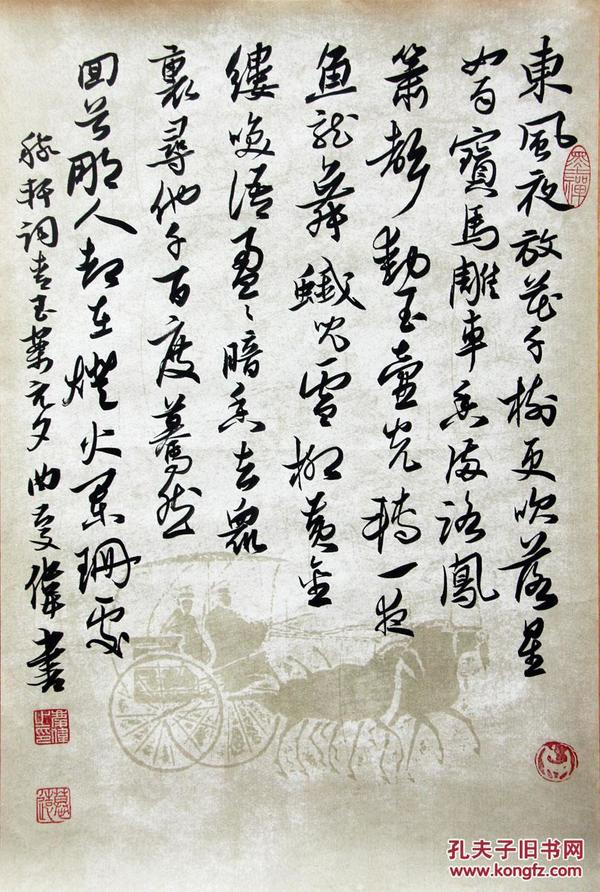 東風夜放花千樹更吹落星
如雨寶馬雕車香滿路鳳
簫聲動玉壺光轉一夜
魚龍舞蛾兒雪柳黃金
縷笑語盈〻暗香去眾
裏尋他千百度驀然
回首那人卻在燈火闌珊處
稼軒詞青玉案元夕 曲慶偉書
孔夫子旧书网
www.kongfz.com